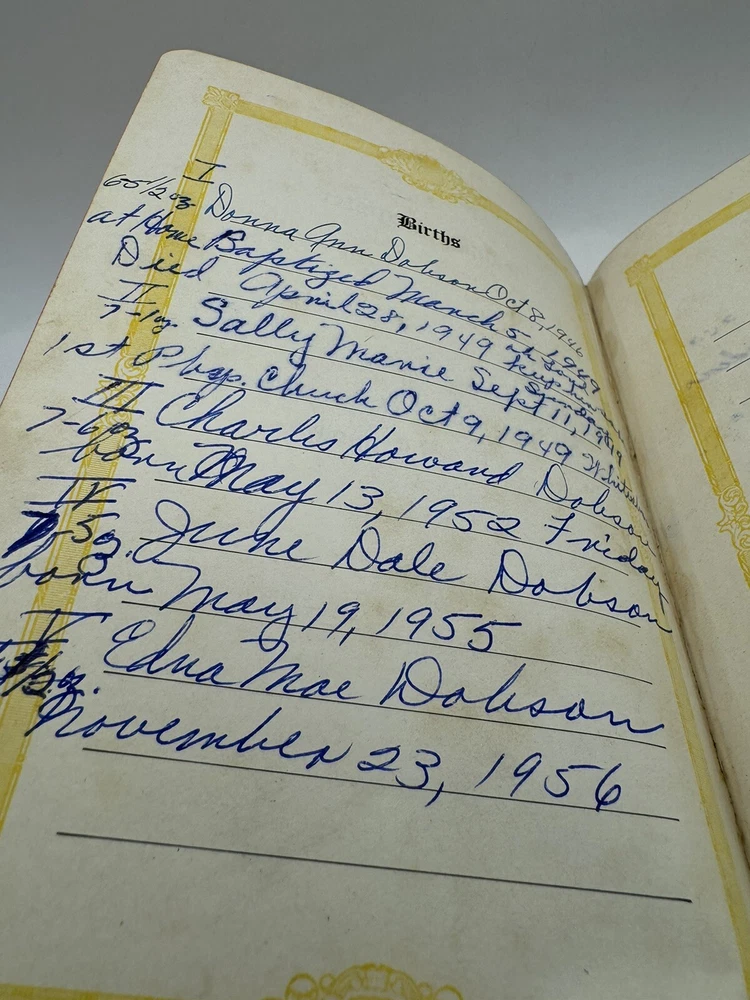 Births
I
Donna Ann Dobson Oct 8, 1946
at Home Baptized March 5, 1949
Died April 28, 1949
II
7-1 oz Sally Marie Sept 11, 1949
1st Phgp. Chuck Oct 9, 1949
III
Charles Howard Dobson
born May 13, 1952 Friday
IV
June Dale Dobson
born May 19, 1955
V
Edna Mae Dobson
November 23, 1956